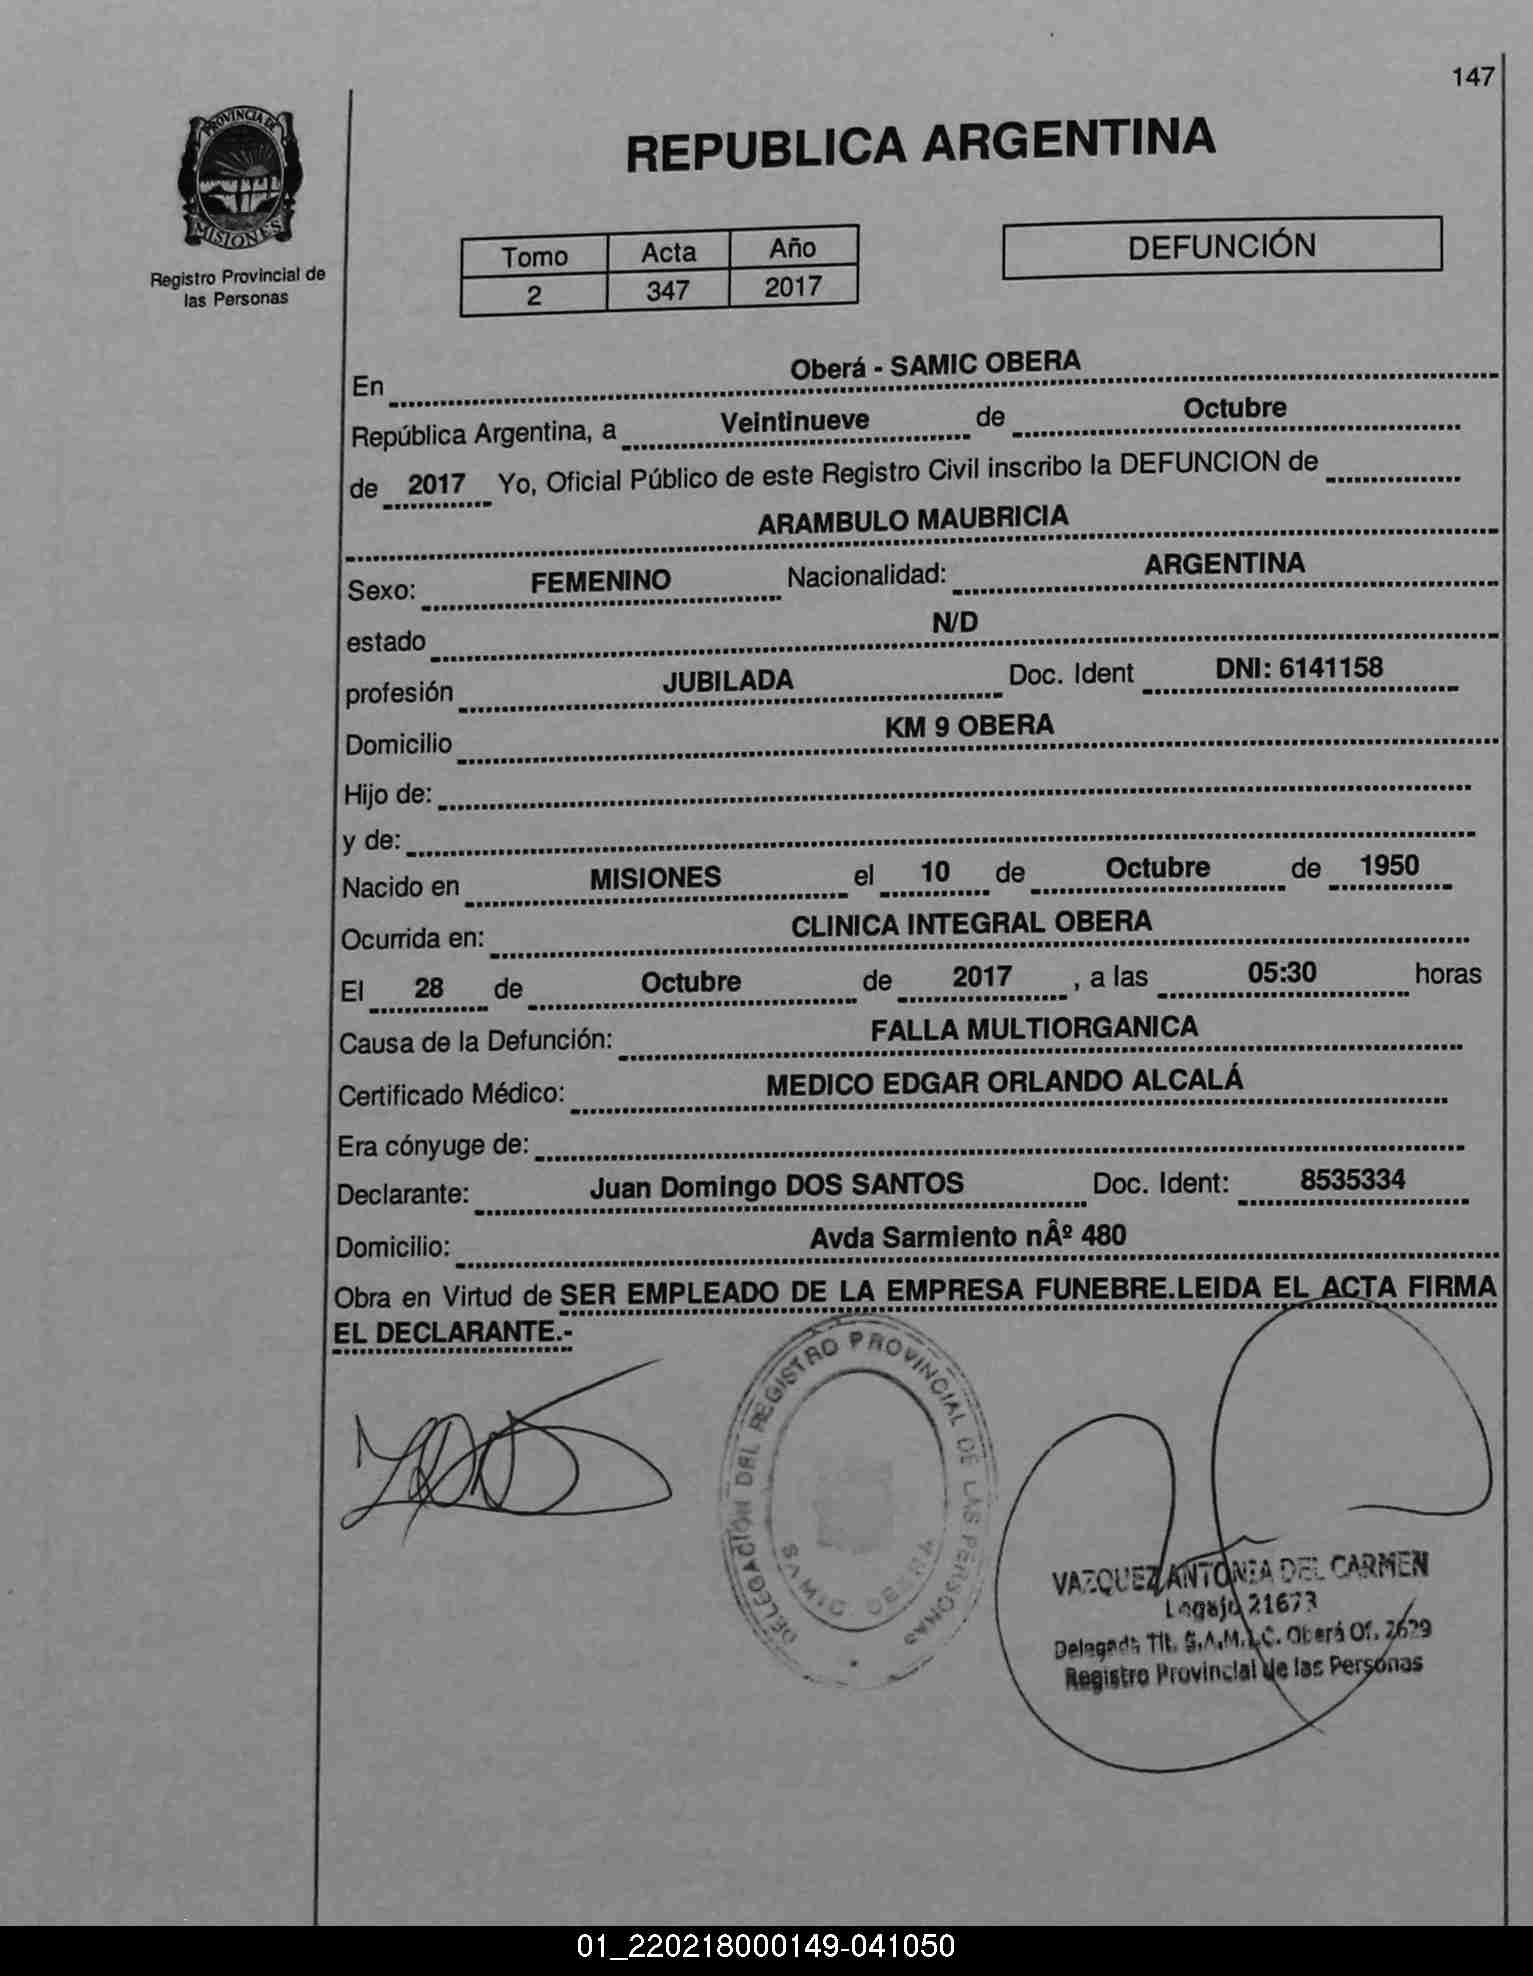 147
PROVINCIA DE
MISIONES
Registro Provincial de
las Personas
REPUBLICA ARGENTINA
Tomo Acta Año
2 347 2017
DEFUNCIÓN
En Oberá - SAMIC OBERA
República Argentina, a Veintinueve de Octubre
de 2017 Yo, Oficial Público de este Registro Civil inscribo la DEFUNCION de
ARAMBULO MAUBRICIA
Sexo: FEMENINO Nacionalidad: ARGENTINA
estado N/D
profesión JUBILADA Doc. Ident DNI: 6141158
Domicilio KM 9 OBERA
Hijo de:
y de:
Nacido en MISIONES el 10 de Octubre de 1950
Ocurrida en: CLINICA INTEGRAL OBERA
El 28 de Octubre de 2017 , a las 05:30 horas
Causa de la Defunción: FALLA MULTIORGANICA
Certificado Médico: MEDICO EDGAR ORLANDO ALCALÁ
Era cónyuge de:
Declarante: Juan Domingo DOS SANTOS Doc. Ident: 8535334
Domicilio: Avda Sarmiento nÂº 480
Obra en Virtud de SER EMPLEADO DE LA EMPRESA FUNEBRE.LEIDA EL ACTA FIRMA
EL DECLARANTE.-
DELEGACIÓN DEL REGISTRO PROVINCIAL DE LAS PERSONAS
SAMIC OBERA
VAZQUEZ ANTONIA DEL CARMEN
Legajo 21673
Delegada Tit. S.A.M.I.C. Oberá Of. 2629
Registro Provincial de las Personas
01_220218000149-041050